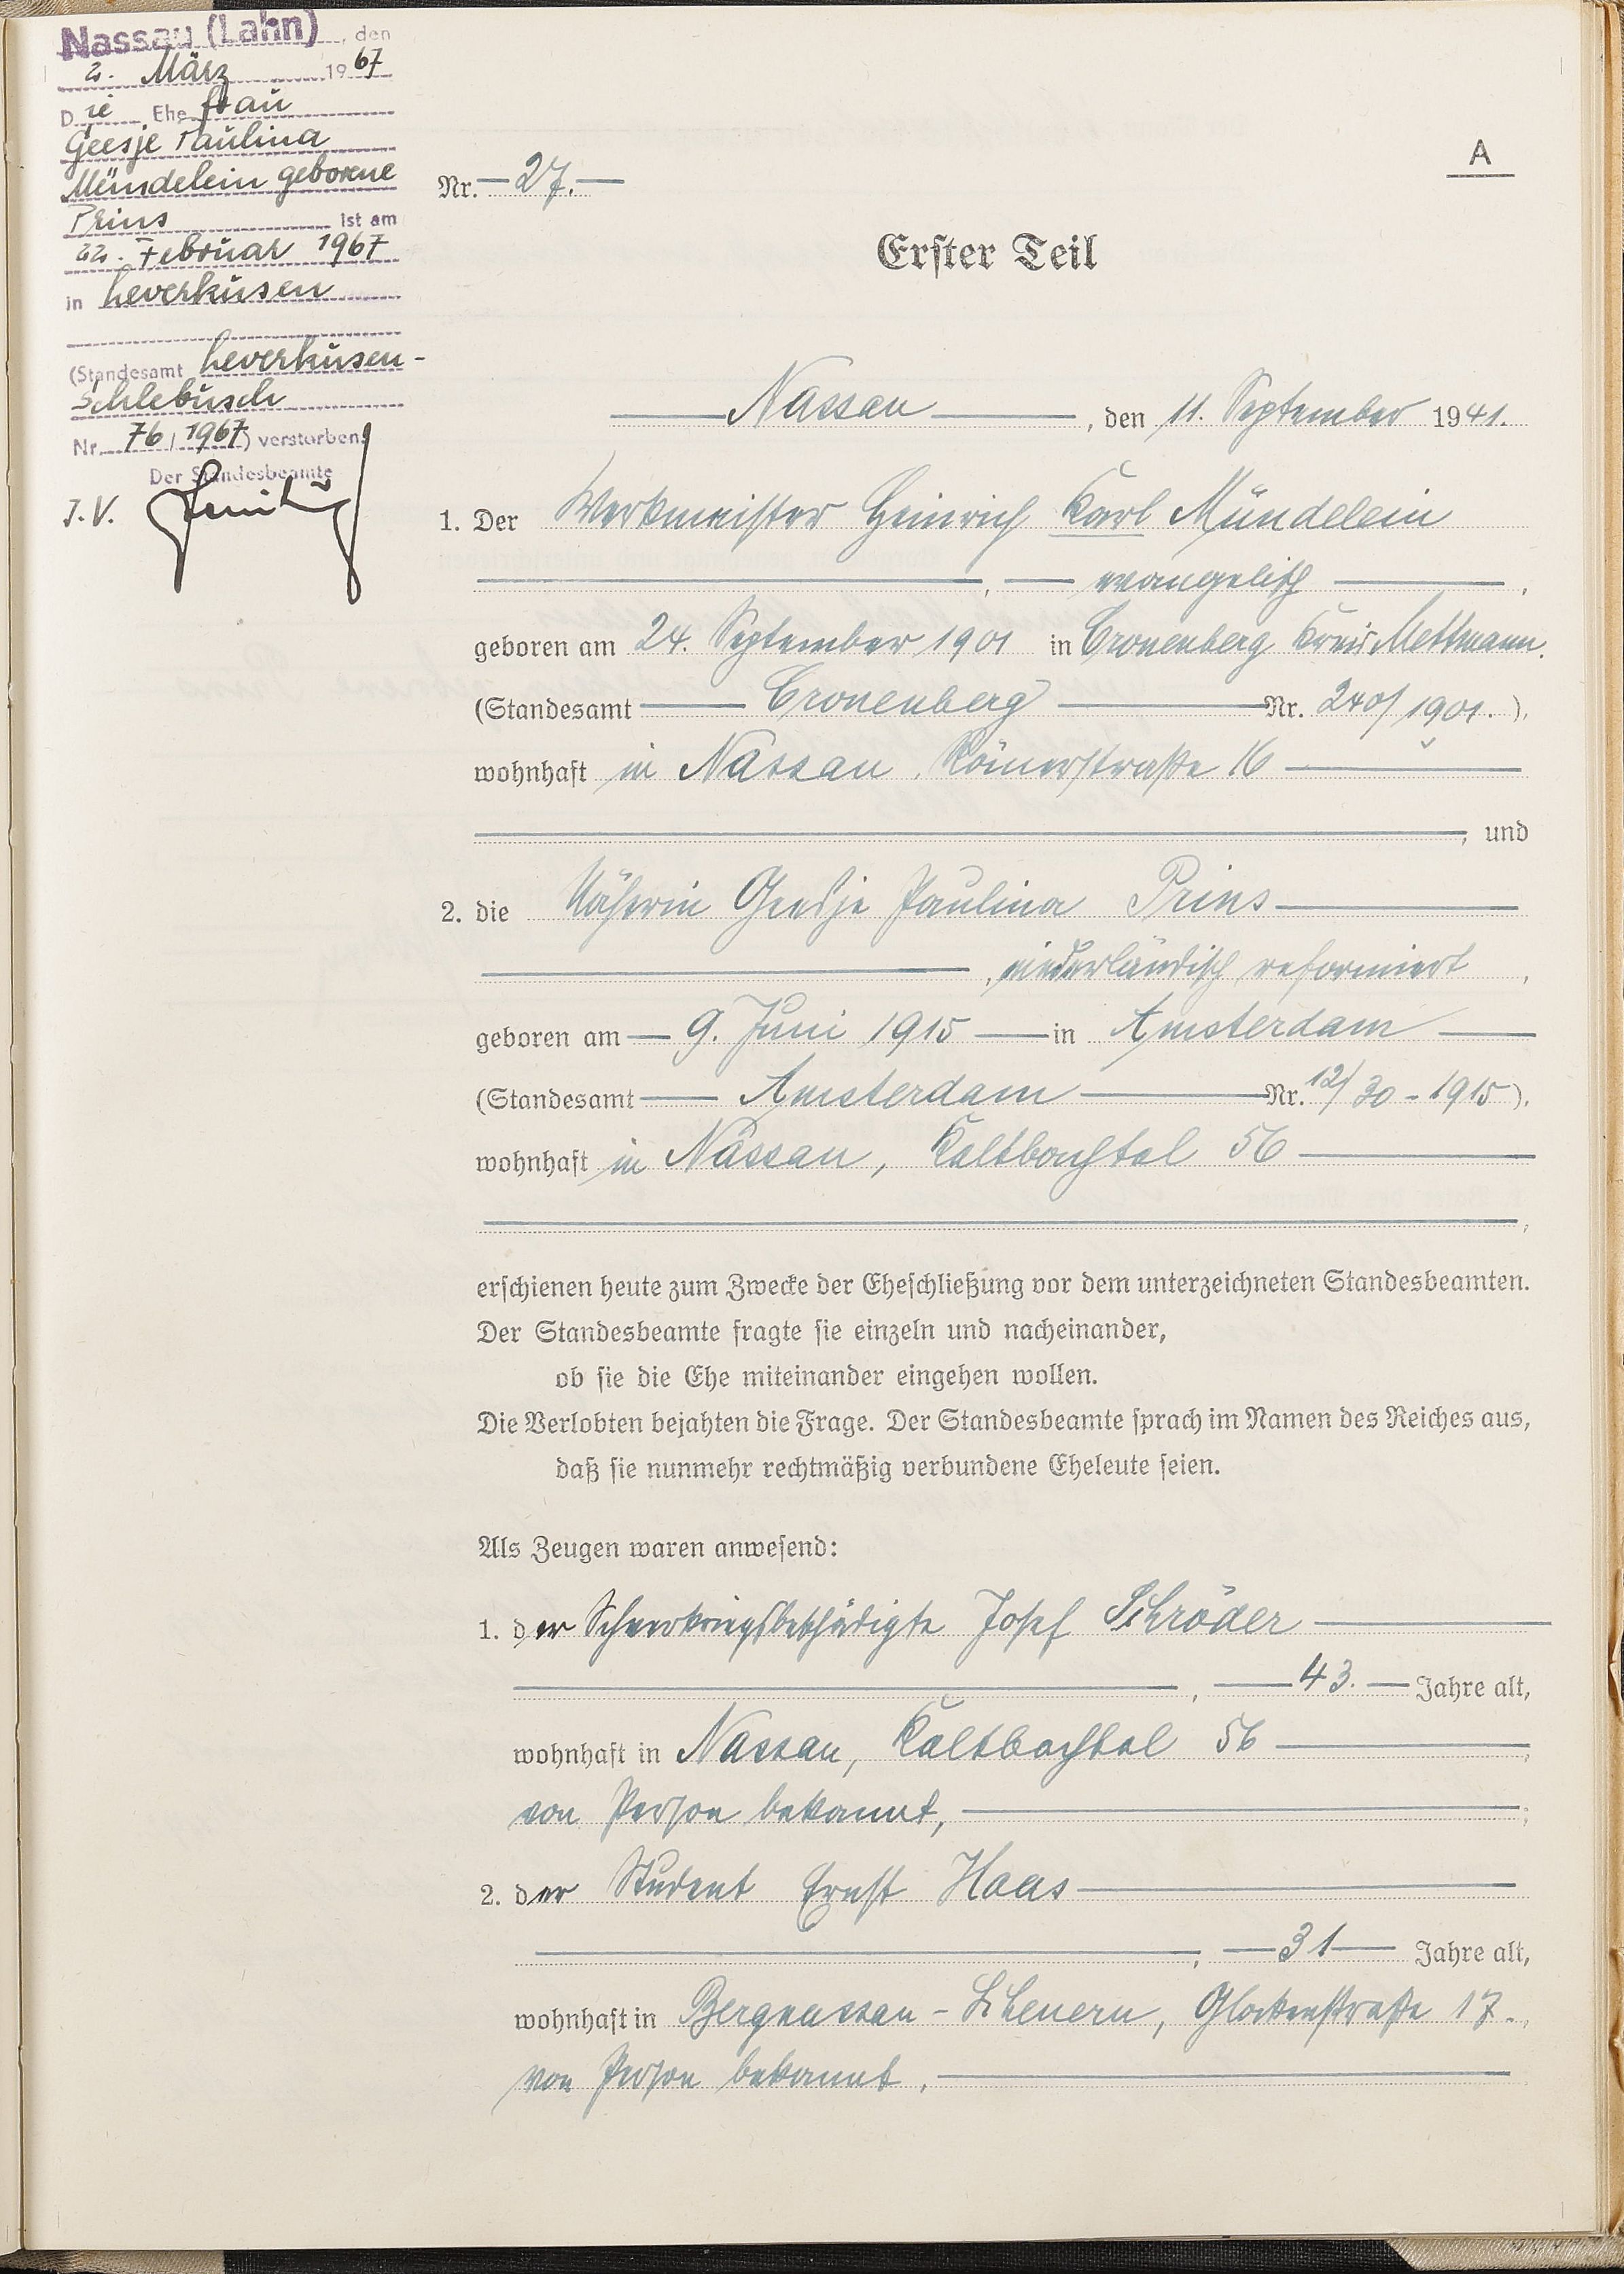 Nassau (Lahn), den
2. März 1967
Die Ehefrau
Geesje Paulina
Mündelein geborene
Prins ist am
22. Februar 1967
in Leverkusen
(Standesamt Leverkusen-
Schlebusch
Nr. 76/1967) verstorben.
Der Standesbeamte
J.V.
A
Nr. 27.
Erster Teil
Nassau, den 11. September 1941.
1. Der Werkmeister Heinrich Karl Mündelein
, evangelisch,
geboren am 24. September 1901 in Cronenberg Kreis Mettmann.
(Standesamt Cronenberg Nr. 240/1901.),
wohnhaft in Nassau, Römerstraße 16
, und
2. die Näherin Geesje Paulina Prins
, niederländisch reformiert,
geboren am 9. Juni 1915 in Amsterdam
(Standesamt Amsterdam Nr. 12/30-1915),
wohnhaft in Nassau, Kaltbachtal 56
,
erschienen heute zum Zwecke der Eheschließung vor dem unterzeichneten Standesbeamten.
Der Standesbeamte fragte sie einzeln und nacheinander,
ob sie die Ehe miteinander eingehen wollen.
Die Verlobten bejahten die Frage. Der Standesbeamte sprach im Namen des Reiches aus,
daß sie nunmehr rechtmäßig verbundene Eheleute seien.
Als Zeugen waren anwesend:
1. der Schwerkriegsbeschädigte Josef Schröder
, 43. Jahre alt,
wohnhaft in Nassau, Kaltbachtal 56,
von Person bekannt,;
2. der Student Ernst Haas
, 31 Jahre alt,
wohnhaft in Bergnassau-Scheuern, Glockenstraße 17.,
von Person bekannt,